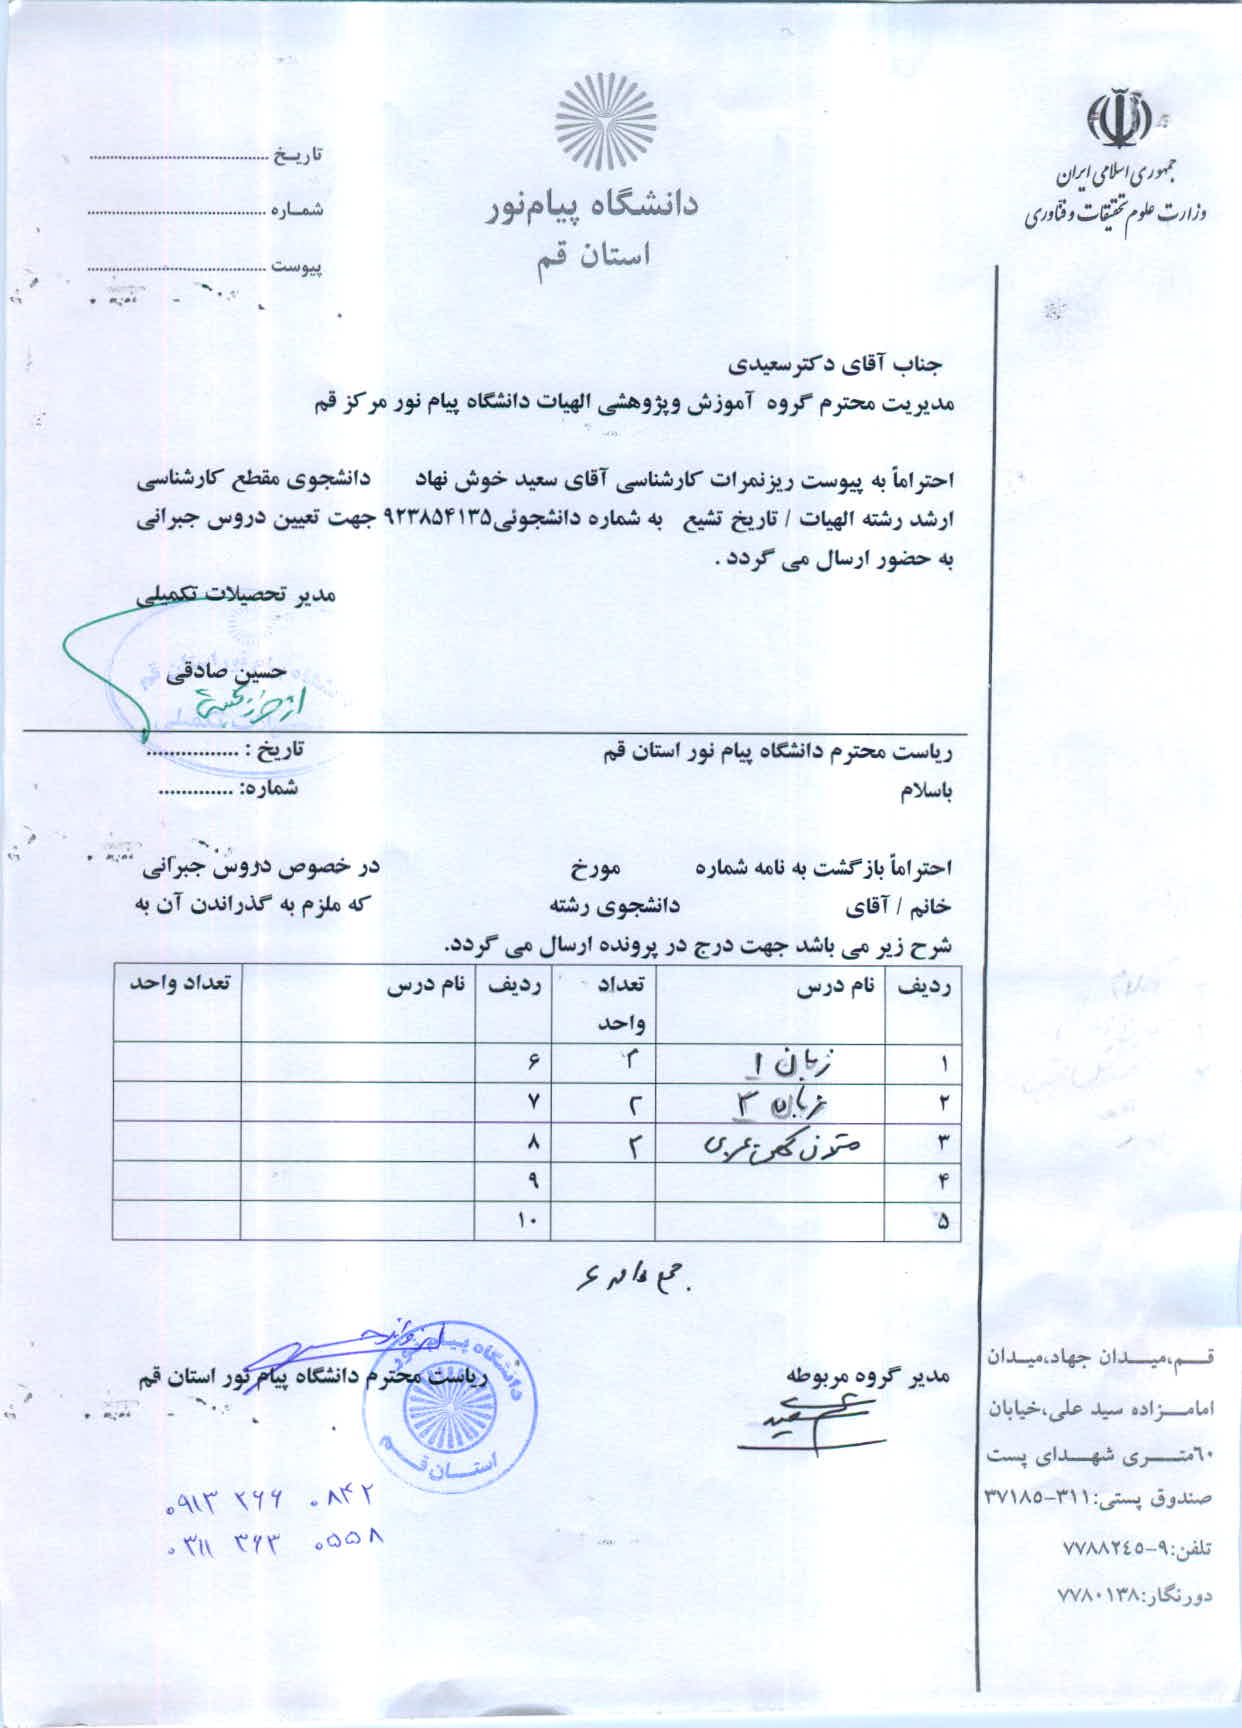 جمهوری اسلامی ایران
وزارت علوم تحقیقات و فناوری
دانشگاه پیام‌نور
استان قم
تاریـخ ........................................
شمـاره ........................................
پیوست ........................................
جناب آقای دکترسعیدی
مدیریت محترم گروه آموزش وپژوهشی الهیات دانشگاه پیام نور مرکز قم
احتراماً به پیوست ریزنمرات کارشناسی آقای سعید خوش نهاد دانشجوی مقطع کارشناسی
ارشد رشته الهیات / تاریخ تشیع به شماره دانشجوئی۹۲۳۸۵۴۱۳۵ جهت تعیین دروس جبرانی
به حضور ارسال می گردد .
مدیر تحصیلات تکمیلی
حسین صادقی
ریاست محترم دانشگاه پیام نور استان قم تاریخ : ................
باسلام شماره: .............
احتراماً بازگشت به نامه شماره مورخ در خصوص دروس جبرانی
خانم / آقای دانشجوی رشته که ملزم به گذراندن آن به
شرح زیر می باشد جهت درج در پرونده ارسال می گردد.
ردیف نام درس تعداد واحد ردیف نام درس تعداد واحد
۱ زبان ۱ ۲ ۶
۲ زبان ۲ ۷
۳ متون کهن عربی ۲ ۸
۴ ۹
۵ ۱۰
جمع واحد ۶
مدیر گروه مربوطه ریاست محترم دانشگاه پیام نور استان قم
دانشگاه پیـام نور
استــان قــم
۰۹۱۳ ۲۶۶ ۰۸۴۲
۰۳۱۱ ۳۶۳ ۰۵۵۸
قــم،میــدان جهاد،میـدان
امامــزاده سید علی،خیابان
٦٠متــری شهــدای پست
صندوق پستی:۳۱۱-۳۷۱۸۵
تلفن:۹-۷۷۸۸۲٤۵
دورنگار:۷۷۸۰۱۳۸